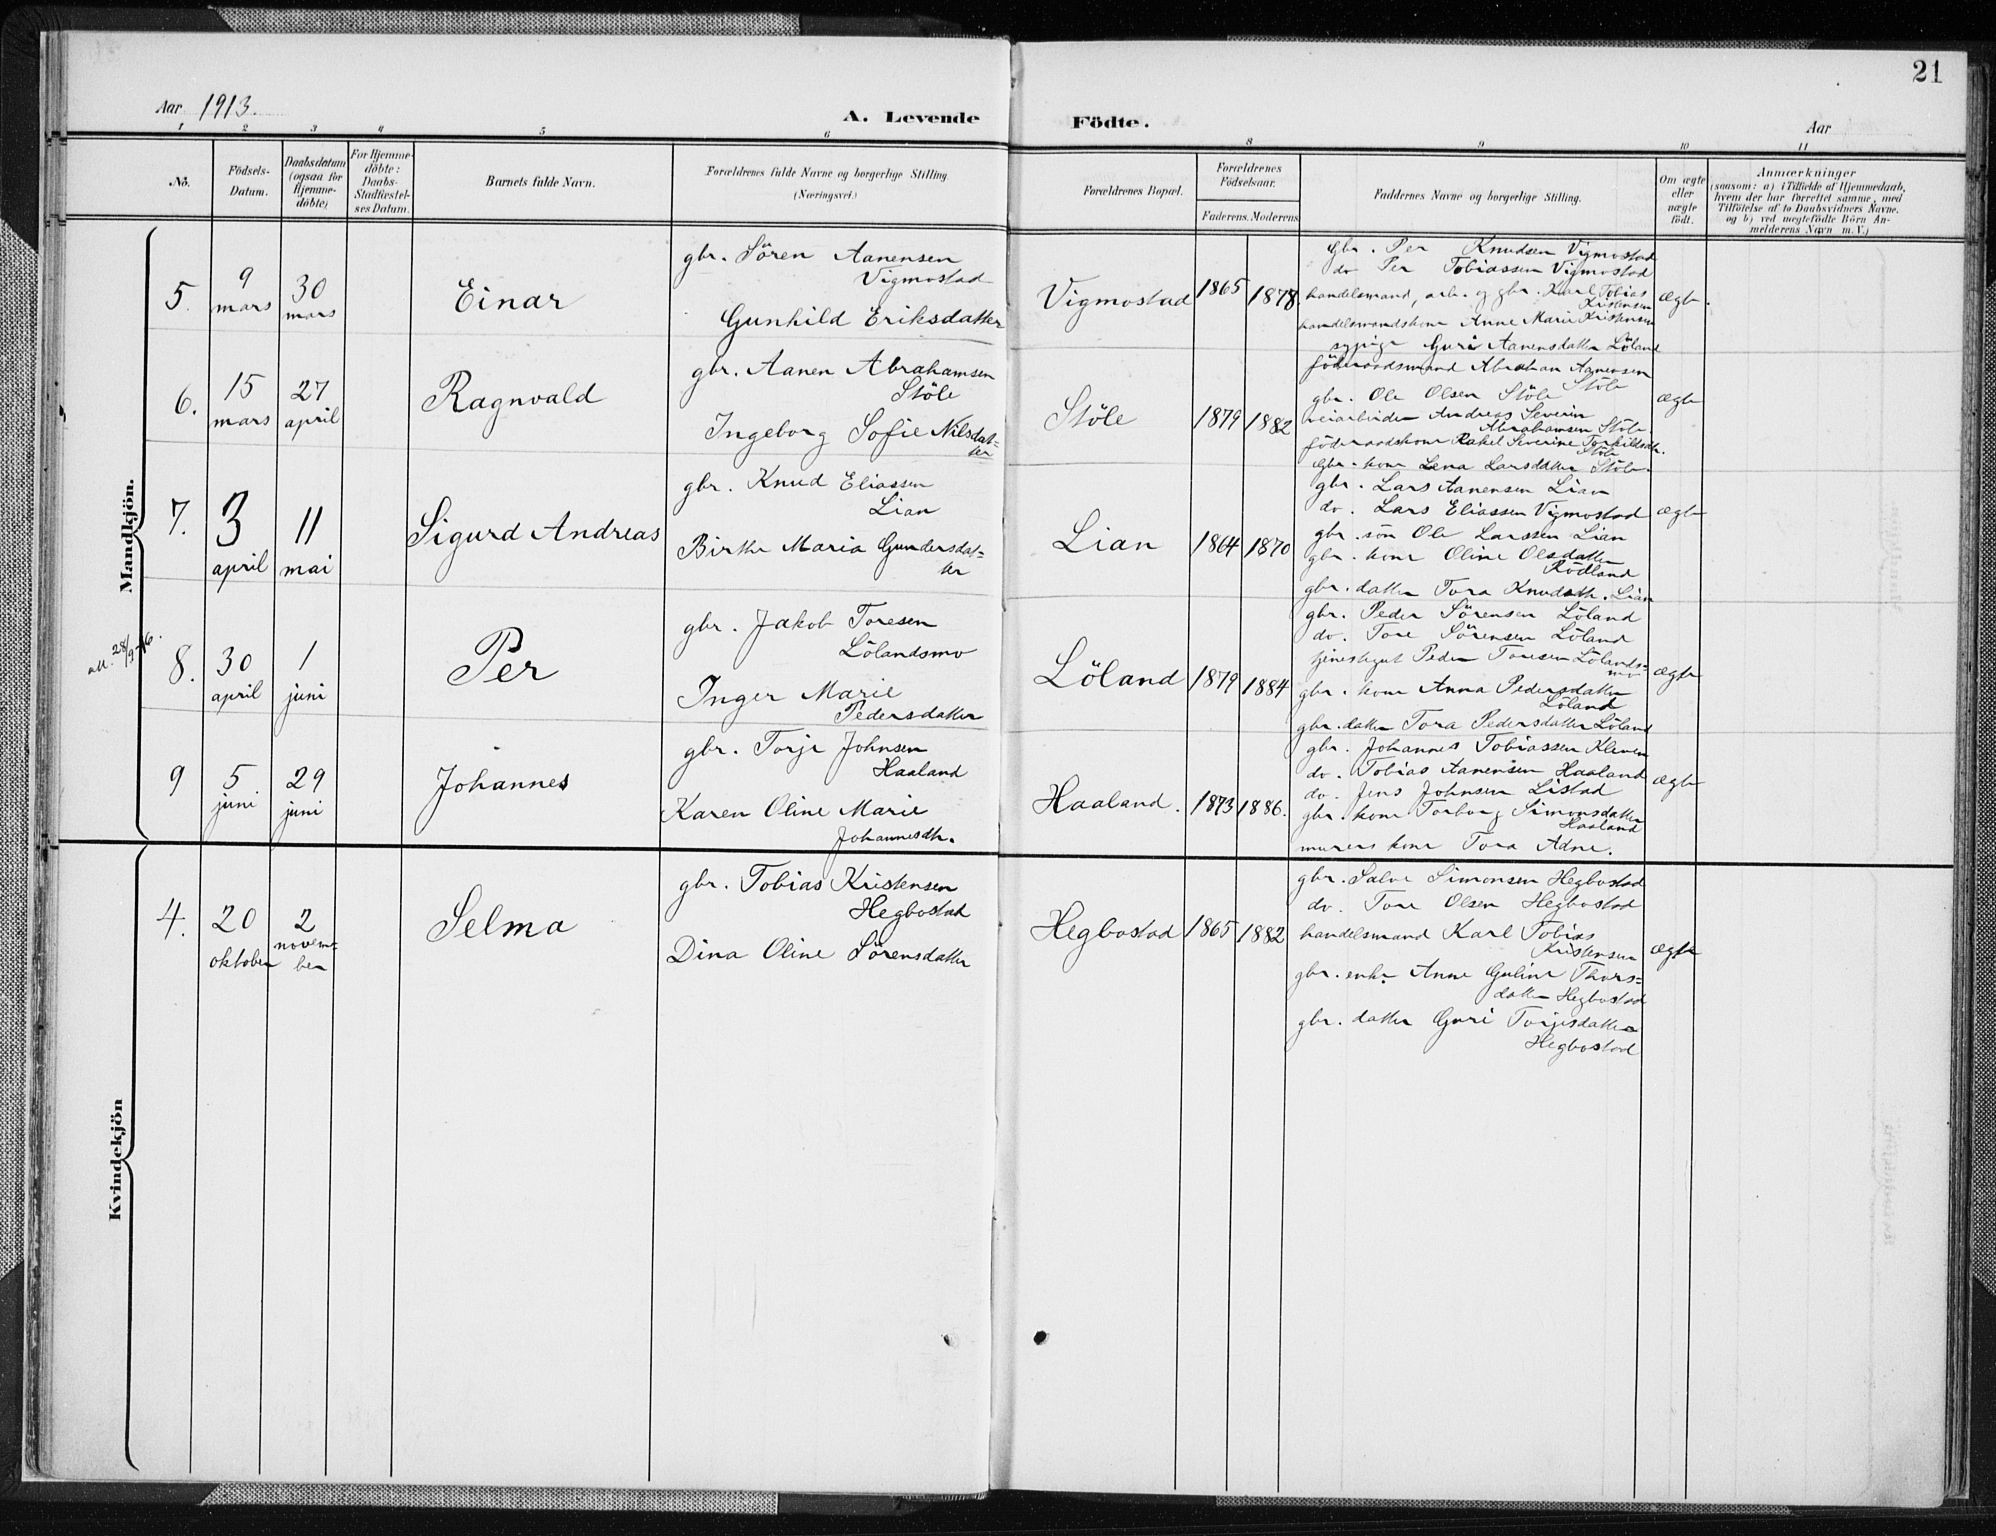 21
Aar 1913.
A. Levende Födte.
Aar
1 2 3 4 5 6 8 9 10 11
No.
Födsels-
Datum.
Daabsdatum
(ogsaa for
Hjemme-
döbte)
For Hjemme-
döbte:
Daabs-
Stadfæstel-
ses Datum.
Barnets fulde Navn.
Forældrenes fulde Navne og borgerlige Stilling
(Næringsvei.)
Forældrenes Bopæl.
Forældrenes
Födselsaar.
Faderens. Moderens.
Faddernes Navne og borgerlige Stilling.
Om ægte
eller
uægte
födt.
Anmærkninger
(saasom: a) i Tilfælde af Hjemmedaab,
hvem der har forrettet samme, med
Tilföielse af to Daabsvidners Navne.
og b) ved uægtefödte Börn An-
melderens Navn m. V.)
Mandkjön.
5.
9
mars
30
mars
Einar
gbr. Sören Aanensen
Vigmostad
Gunhild Eriksdatter
Vigmostad
1865
1878.
Gbr. Per Knudsen Vigmostad
do Per Tobiassen Vigmostad
handelsmand, arb. og gbr. Karl Tobias
Kristensen
handelsmandskone Anne Marie Kristensen
sypige Guri Aanensdatter Löland
ægte.
6.
15
mars
27
april
Ragnvald
gbr. Aanen Abrahamsen
Stöle
Ingeborg Sofie Nilsdat-
ter
Stöle
1879
1882
föderaadsmand Abraham Aanensen
Stöle
gbr. Ole Olsen Stöle
veiarbeider Andreas Severin
Abrahamsen Stöle.
föderaadskone Rakel Severine Torkildsdtr.
Stöle
Gbr. kone Lena Larsdatter Stöle.
ægte
7.
3
april
11
mai
Sigurd Andreas
gbr. Knud Eliassen
Lian
Birthe Maria Gundersdat-
ter
Lian
1864
1870
gbr. Lars Aanensen Lian
do. Lars Eliassen Vigmostad
gbr. sön Ole Larssen Lian
gbr. kone Oline Olsdatter
Rödland
gbr. datter Tora Knudsdtr. Lian
ægte
att. 28/9-46.
8.
30
april
1
juni
Per
gbr. Jakob Toresen
Lölandsmo
Inger Marie
Pedersdatter
Löland
1879
1884
gbr. Peder Sörensen Löland
do. Tore Sörensen Löland
tjenestegut Peder Toresen Lölands-
mo
gbr. kone Anna Pedersdatter
Löland
gbr. datter Tora Pedersdatter Löland
ægte
9
5
juni
29
juni
Johannes
gbr. Torje Johnsen
Haaland
Karen Oline Marie
Johannesdtr.
Haaland.
1873
1886.
gbr. Johannes Tobiassen Kleven
do. Tobias Aanensen Haaland
do. Jens Johnsen Listad
gbr. kone Torborg Simonsdatter
Haaland
murers kone Tora Adne.
ægte
Kvindekjön
4.
20
oktober
2
novem-
ber
Selma
gbr. Tobias Kristensen
Hegbostad
Dina Oline Sörensdatter
Hegbostad
1865
1882
gbr. Salve Simonsen Hegbostad
do. Tore Olsen Hegbostad
handelsmand Karl Tobias
Kristensen
gbr. enke Anne Guline Thors-
datter Hegbostad
gbr. datter Guri Torjesdatter
Hegbostad
ægte